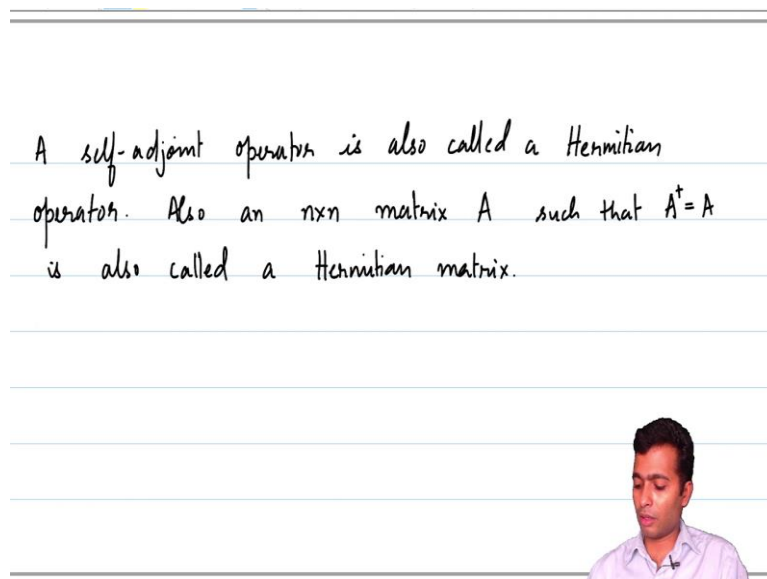 A self-adjoint operator is also called a Hermitian
operator. Also an n×n matrix A such that A† = A
is also called a Hermitian matrix.